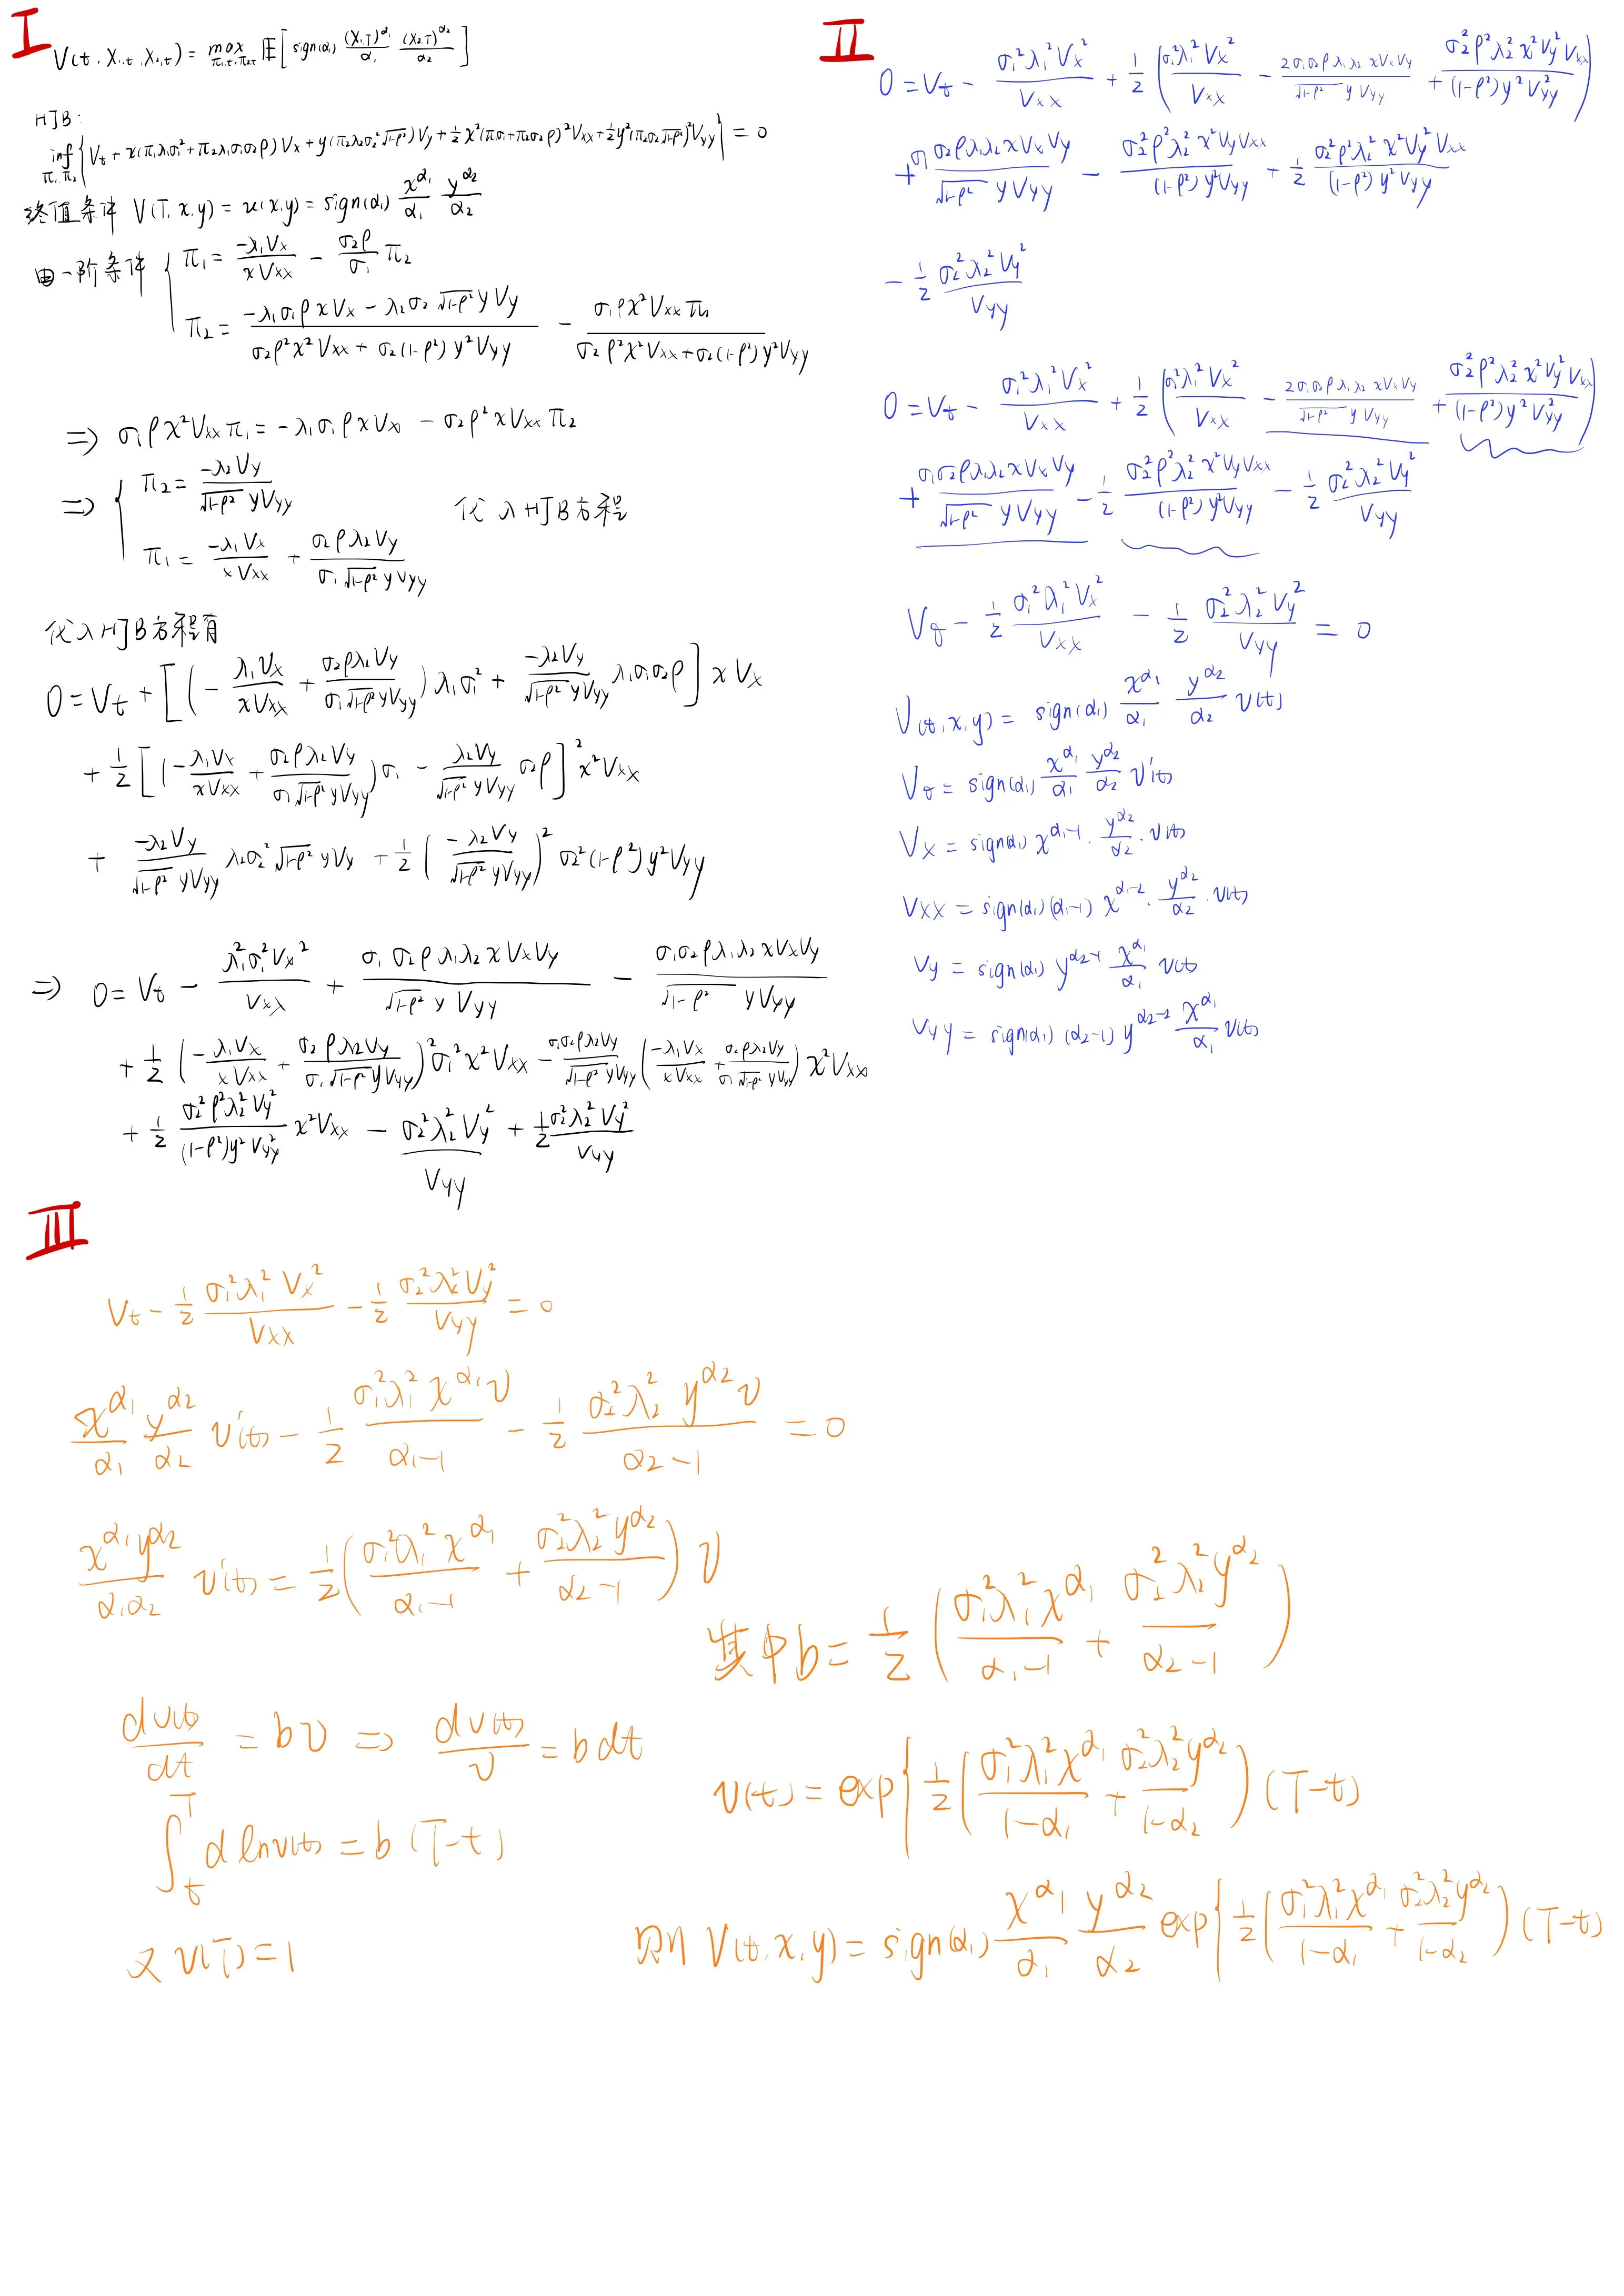 I
V(t, X₁,t, X₂,t) = max_{π₁,t, π₂,t} E[ sign(α₁) (X₁,T)^{α₁}/α₁ (X₂,T)^{α₂}/α₂ ]
HJB:
inf_{π₁,π₂} { V_t + x(π₁λ₁σ₁² + π₂λ₁σ₁σ₂ρ) V_x + y(π₂λ₂σ₂²√(1-ρ²)) V_y + 1/2 x²(π₁σ₁+π₂σ₂ρ)² V_xx + 1/2 y²(π₂σ₂√(1-ρ²))² V_yy } = 0
终值条件 V(T, x, y) = u(x, y) = sign(α₁) x^{α₁}/α₁ y^{α₂}/α₂
由一阶条件 { π₁ = -λ₁V_x/(xV_xx) - σ₂ρ/σ₁ π₂
π₂ = (-λ₁σ₁ρxV_x - λ₂σ₂√(1-ρ²) yV_y)/(σ₂ρ²x²V_xx + σ₂(1-ρ²)y²V_yy) - σ₁ρx²V_xx π₁/(σ₂ρ²x²V_xx + σ₂(1-ρ²)y²V_yy)
⇒ σ₁ρx²V_xx π₁ = -λ₁σ₁ρxV_x - σ₂ρ²xV_xx π₂
⇒ { π₂ = -λ₂V_y/(√(1-ρ²) yV_yy)
代入HJB方程
π₁ = -λ₁V_x/(xV_xx) + σ₂ρλ₂V_y/(σ₁√(1-ρ²) yV_yy)
代入HJB方程有
0 = V_t + [ (-λ₁V_x/(xV_xx) + σ₂ρλ₂V_y/(σ₁√(1-ρ²) yV_yy)) λ₁σ₁² + -λ₂V_y/(√(1-ρ²) yV_yy) λ₁σ₁σ₂ρ ] xV_x
+ 1/2 [ (-λ₁V_x/(xV_xx) + σ₂ρλ₂V_y/(σ₁√(1-ρ²) yV_yy)) σ₁ - λ₂V_y/(√(1-ρ²) yV_yy) σ₂ρ ]² x²V_xx
+ -λ₂V_y/(√(1-ρ²) yV_yy) λ₂σ₂²√(1-ρ²) yV_y + 1/2 ( -λ₂V_y/(√(1-ρ²) yV_yy) )² σ₂²(1-ρ²) y²V_yy
⇒ 0 = V_t - λ₁²σ₁²V_x²/V_xx + σ₁σ₂ρλ₁λ₂xV_xV_y/(√(1-ρ²) yV_yy) - σ₁σ₂ρλ₁λ₂xV_xV_y/(√(1-ρ²) yV_yy)
+ 1/2 ( -λ₁V_x/(xV_xx) + σ₂ρλ₂V_y/(σ₁√(1-ρ²) yV_yy) )² σ₁²x²V_xx - σ₁σ₂ρλ₂V_y/(√(1-ρ²) yV_yy) ( -λ₁V_x/(xV_xx) + σ₂ρλ₂V_y/(σ₁√(1-ρ²) yV_yy) ) x²V_xx
+ 1/2 σ₂²ρ²λ₂²V_y²/((1-ρ²)y²V_yy²) x²V_xx - σ₂²λ₂²V_y²/V_yy + 1/2 σ₂²λ₂²V_y²/V_yy
II
0 = V_t - σ₁²λ₁²V_x²/V_xx + 1/2 ( σ₁²λ₁²V_x²/V_xx - 2σ₁σ₂ρλ₁λ₂xV_xV_y/(√(1-ρ²) yV_yy) + σ₂²ρ²λ₂²x²V_y²V_xx/((1-ρ²)y²V_yy²) )
+ σ₁σ₂ρλ₁λ₂xV_xV_y/(√(1-ρ²) yV_yy) - σ₂²ρ²λ₂²x²V_yV_xx/((1-ρ²)y²V_yy) + 1/2 σ₂²ρ²λ₂²x²V_y²V_xx/((1-ρ²)y²V_yy)
- 1/2 σ₂²λ₂²V_y²/V_yy
0 = V_t - σ₁²λ₁²V_x²/V_xx + 1/2 ( σ₁²λ₁²V_x²/V_xx - 2σ₁σ₂ρλ₁λ₂xV_xV_y/(√(1-ρ²) yV_yy) + σ₂²ρ²λ₂²x²V_y²V_xx/((1-ρ²)y²V_yy²) )
+ σ₁σ₂ρλ₁λ₂xV_xV_y/(√(1-ρ²) yV_yy) - 1/2 σ₂²ρ²λ₂²x²V_yV_xx/((1-ρ²)y²V_yy) - 1/2 σ₂²λ₂²V_y²/V_yy
V_t - 1/2 σ₁²λ₁²V_x²/V_xx - 1/2 σ₂²λ₂²V_y²/V_yy = 0
V(t,x,y) = sign(α₁) x^{α₁}/α₁ y^{α₂}/α₂ v(t)
V_t = sign(α₁) x^{α₁}/α₁ y^{α₂}/α₂ v'(t)
V_x = sign(α₁) x^{α₁-1} · y^{α₂}/α₂ · v(t)
V_xx = sign(α₁)(α₁-1) x^{α₁-2} · y^{α₂}/α₂ · v(t)
V_y = sign(α₁) y^{α₂-1} x^{α₁}/α₁ v(t)
V_yy = sign(α₁)(α₂-1) y^{α₂-2} x^{α₁}/α₁ v(t)
III
V_t - 1/2 σ₁²λ₁²V_x²/V_xx - 1/2 σ₂²λ₂²V_y²/V_yy = 0
x^{α₁}/α₁ y^{α₂}/α₂ v'(t) - 1/2 σ₁²λ₁²x^{α₁}v/(α₁-1) - 1/2 σ₂²λ₂²y^{α₂}v/(α₂-1) = 0
x^{α₁}y^{α₂}/(α₁α₂) v'(t) = 1/2 ( σ₁²λ₁²x^{α₁}/(α₁-1) + σ₂²λ₂²y^{α₂}/(α₂-1) ) v
其中 b = 1/2 ( σ₁²λ₁²x^{α₁}/(α₁-1) + σ₂²λ₂²y^{α₂}/(α₂-1) )
dv(t)/dt = bv ⇒ dv(t)/v = b dt
∫_t^T d ln v(t) = b(T-t)
又 v(T) = 1
v(t) = exp{ 1/2 ( σ₁²λ₁²x^{α₁}/(1-α₁) + σ₂²λ₂²y^{α₂}/(1-α₂) ) (T-t)
则 V(t,x,y) = sign(α₁) x^{α₁}/α₁ y^{α₂}/α₂ exp{ 1/2 ( σ₁²λ₁²x^{α₁}/(1-α₁) + σ₂²λ₂²y^{α₂}/(1-α₂) ) (T-t)